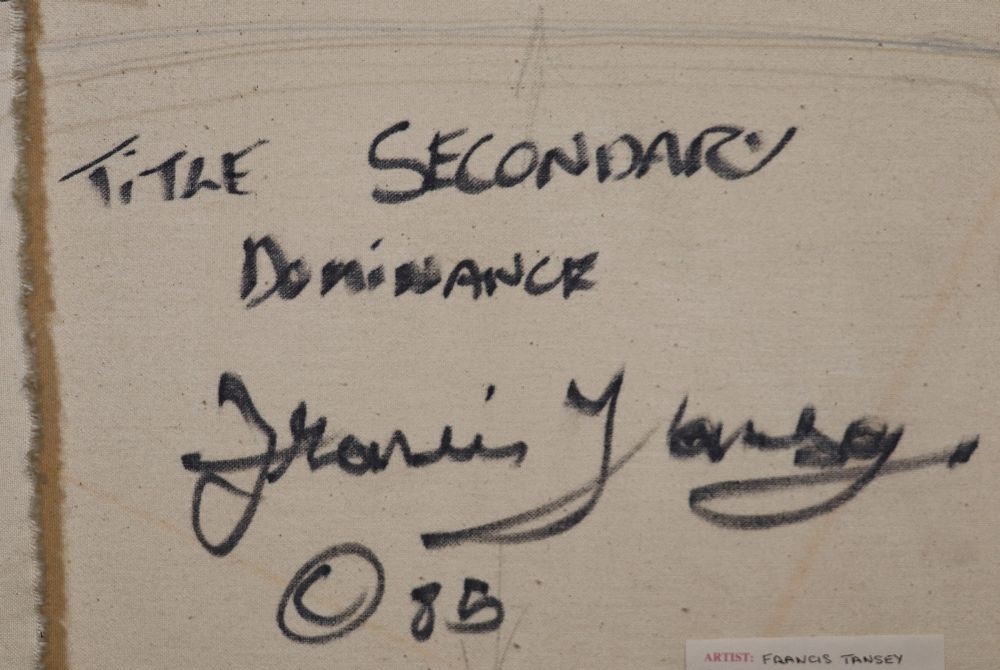 TiTLE SECONDARY
DOMiNANCE
Francis Tansey.
© 85
ARTIST: FRANCIS TANSEY